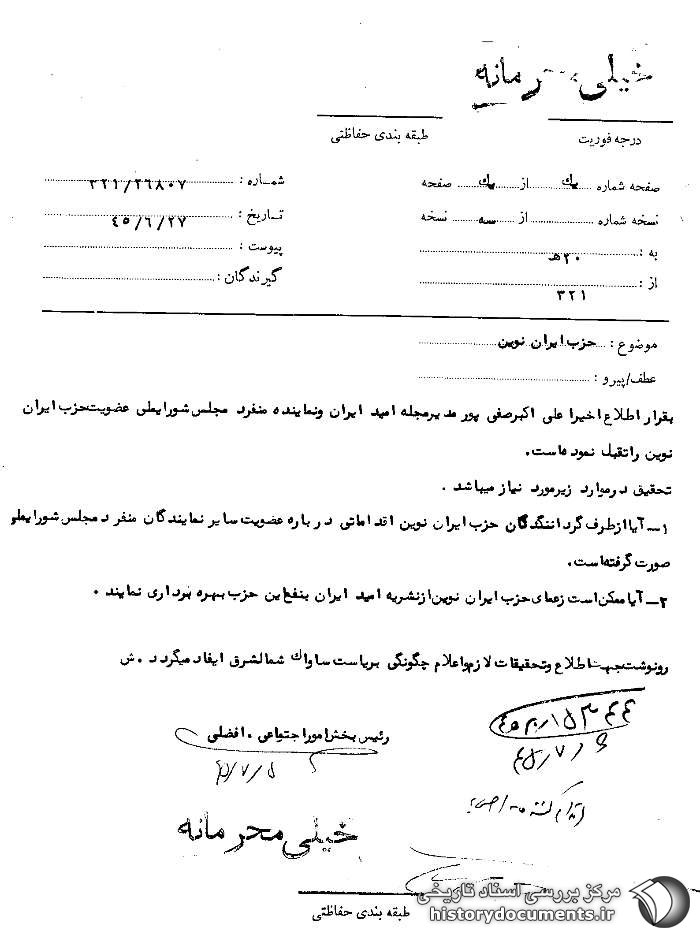 خیلی محرمانه
درجه فوریت
طبقه بندی حفاظتی
صفحه شماره یک از یک صفحه
شماره : ۳۲۱/۲۶۸۰۷
نسخه شماره از سه نسخه
تاریخ : ۴۵/۶/۲۷
به : ۲۰ هـ
پیوست :
از : ۳۲۱
گیرندگان :
موضوع : حزب ایران نوین
عطف/پیرو :
بقرار اطلاع اخیرا علی اکبر صفی پور مدیر مجله امید ایران و نماینده منفرد مجلس شورایملی عضویت حزب ایران
نوین را تقبل نموده است.
تحقیق در موارد زیر مورد نیاز میباشد .
۱- آیا از طرف گردانندگان حزب ایران نوین اقداماتی در باره عضویت سایر نمایندگان منفرد مجلس شورایملی
صورت گرفته است.
۲- آیا ممکن است زعمای حزب ایران نوین از نشریه امید ایران بنفع این حزب بهره برداری نمایند .
رونوشت جهت اطلاع و تحقیقات لازم و اعلام چگونگی بریاست ساواک شمالشرق ایفاد میگردد . ش
رئیس بخش امور اجتماعی . افضلی
۴۵/۷/۵
۴۵/۷/۶
خیلی محرمانه
طبقه بندی حفاظتی
مرکز بررسی اسناد تاریخی
historydocuments.ir